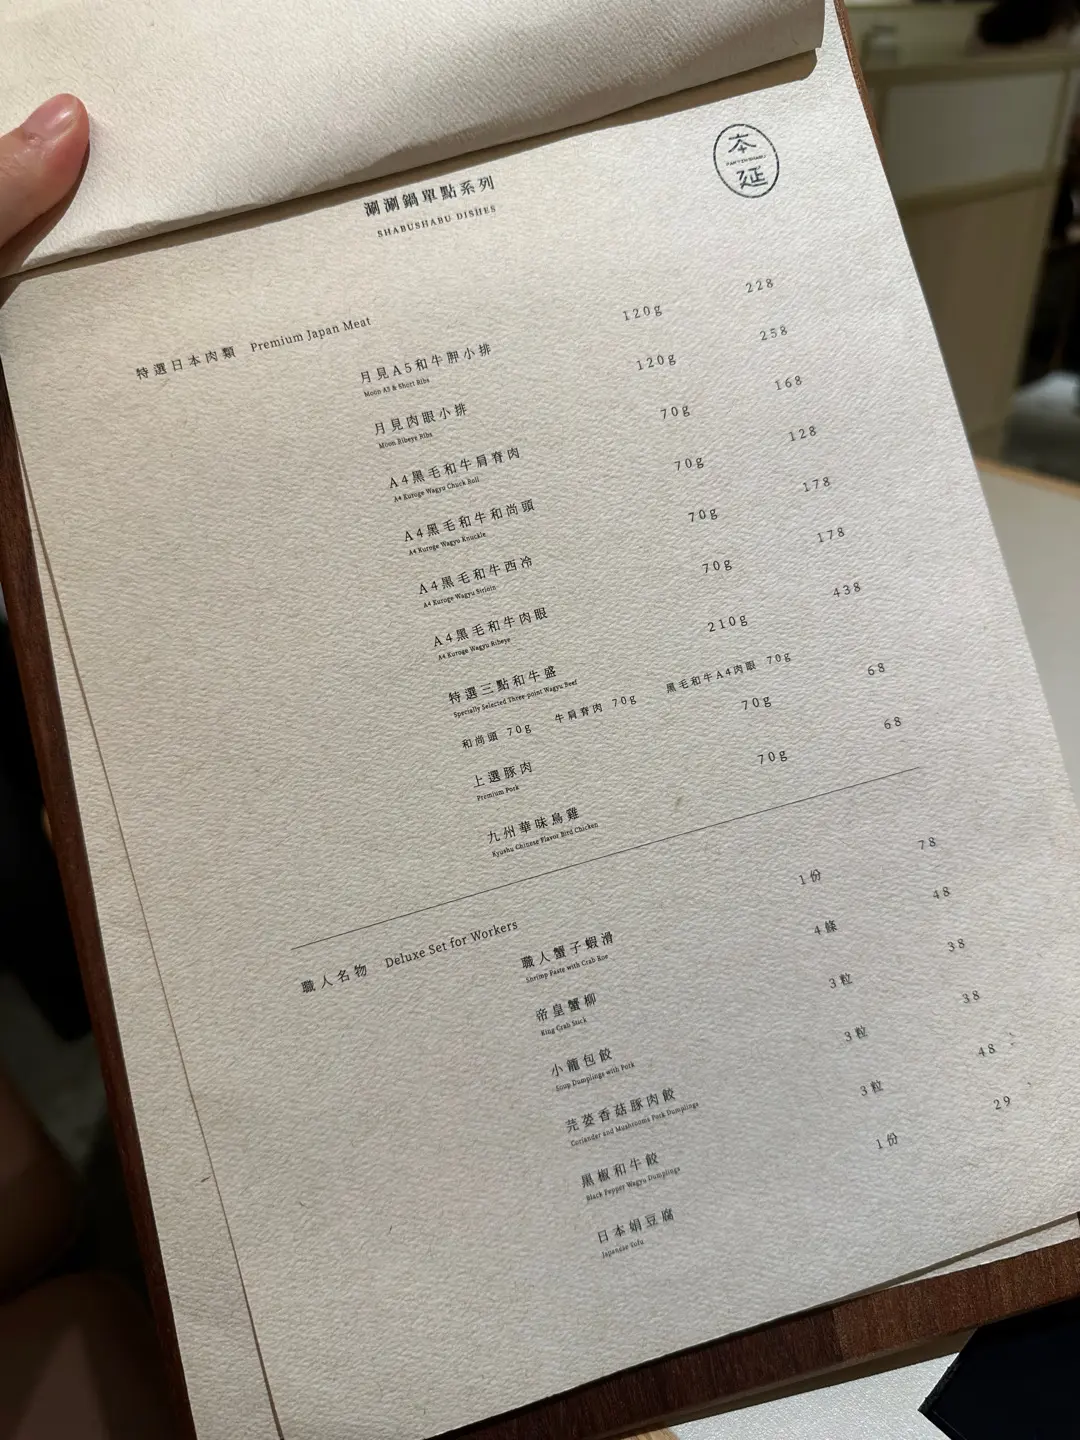 本
延
涮涮鍋單點系列
SHABUSHABU DISHES
特選日本肉類 Premium Japan Meat
月見A5和牛胛小排 120g 228
Moon A5 & Short Ribs
月見肉眼小排 120g 258
Moon Ribeye Ribs
A4黑毛和牛肩脊肉 70g 168
A4 Kuroge Wagyu Chuck Roll
A4黑毛和牛和尚頭 70g 128
A4 Kuroge Wagyu Knuckle
A4黑毛和牛西冷 70g 178
A4 Kuroge Wagyu Sirloin
A4黑毛和牛肉眼 70g 178
A4 Kuroge Wagyu Ribeye
特選三點和牛盛 210g 438
Specially Selected Three-point Wagyu Beef
和尚頭 70g 牛肩脊肉 70g 黑毛和牛A4肉眼 70g
上選豚肉 70g 68
Premium Pork
九州華味鳥雞 70g 68
Kyushu Chinese Flavor Bird Chicken
職人名物 Deluxe Set for Workers
職人蟹子蝦滑 1份 78
Shrimp Paste with Crab Roe
帝皇蟹柳 4條 48
King Crab Stick
小籠包餃 3粒 38
Soup Dumplings with Pork
芫荽香菇豚肉餃 3粒 38
Coriander and Mushrooms Pork Dumplings
黑椒和牛餃 3粒 48
Black Pepper Wagyu Dumplings
日本絹豆腐 1份 29
Japanese Tofu